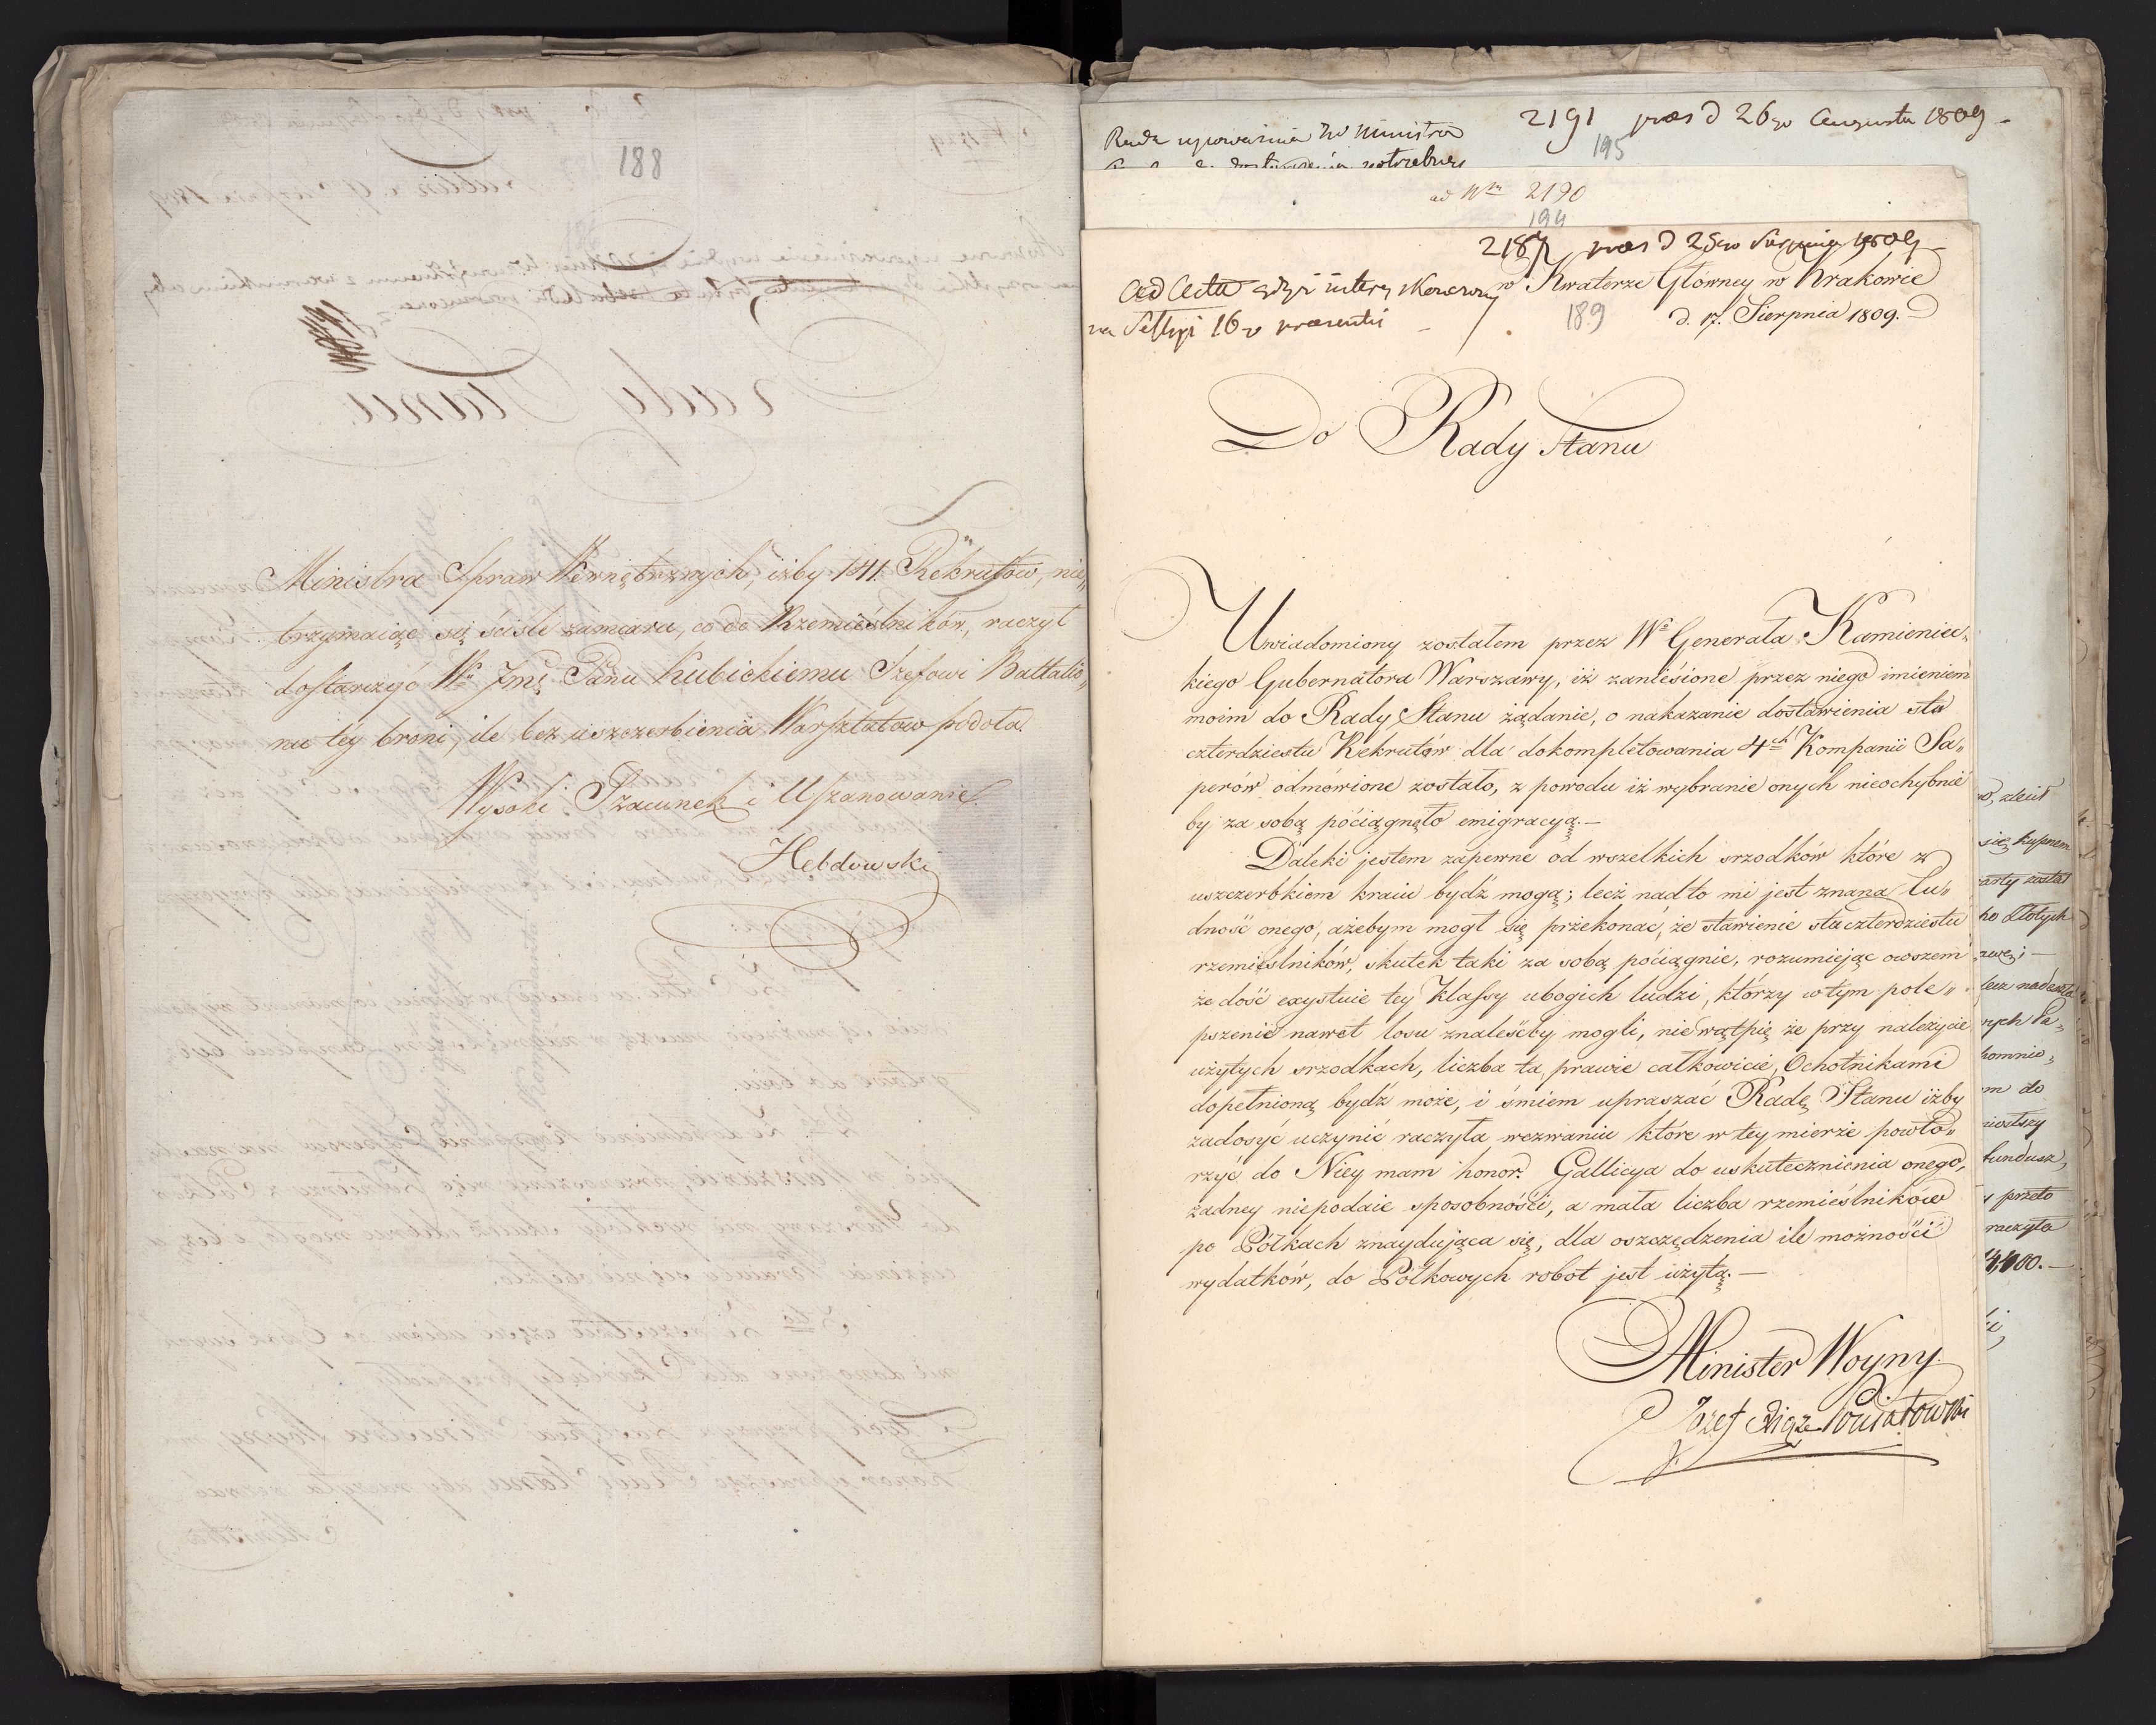 188
Ministra Spraw Wewnętrznych, iżby 141. Rekrutów, nie„
trzymaiąc się ściśle zamiaru, co do Rzemieślników, raczył
dostarczyć Wu Jmć Panu Kubickiemu Szefowi Battalio„
nu tey broni, ile bez uszczerbienia Warsztatów podoła.
Wysoki Szacunek i Uszanowanie
Hebdowski
2191 præs d 26go Augusta 1809
Rada upoważnia JW Ministra
195
ad Nrm 2190
194
2187 præs d 25go Sierpnia 1809
Ad Acta gdyż interes
na Sessyi 16 præsentis
w Kwaterze Główney w Krakowie
189
d. 17. Sierpnia 1809.
Do Rady Stanu
Uwiadomiony zostałem przez Wo Generała Kamieniec„
kiego Gubernatora Warszawy, iż zaniesione przez niego imieniem
moim do Rady Stanu żądanie, o nakazanie dostawienia stu
czterdziestu Rekrutów dla dokompletowania 4ch Kompanii Sa„
perów odmówione zostało, z powodu iż wybranie onych nieochybnie
by za sobą pociągnęło emigracyą.—
Daleki jestem zapewne od wszelkich srzodków które z
uszczerbkiem kraiu bydź mogą; lecz nadto mi jest znana lu„
dność onego, ażebym mogł się przekonać, że stawienie stuczterdziestu
rzemieślników, skutek taki za sobą pociągnie, rozumiejąc owszem
że dość exystuie tey Klassy ubogich ludzi, którzy w tym pole„
pszenie nawet losu znaleśćby mogli, niewątpię że przy należycie
użytych srzodkach, liczba ta, prawie całkowicie, Ochotnikami
dopełnioną bydź może, i śmiem upraszać Radę Stanu iżby
zadosyć uczynić raczyła wezwaniu które w tey mierze powtó„
rzyć do Niey mam honor. Gallicya do uskutecznienia onego,
żadney niepodaie sposobności, a mała liczba rzemieślników
po Półkach znaydująca się, dla oszczędzenia ile możności
wydatków, do Półkowych robot jest użytą.—
Minister Woyny.
Józef Xiąże Poniatowski
się kupnem
został
Złotych
lecz nadeszła
do
fundusz,
przeto
raczyła